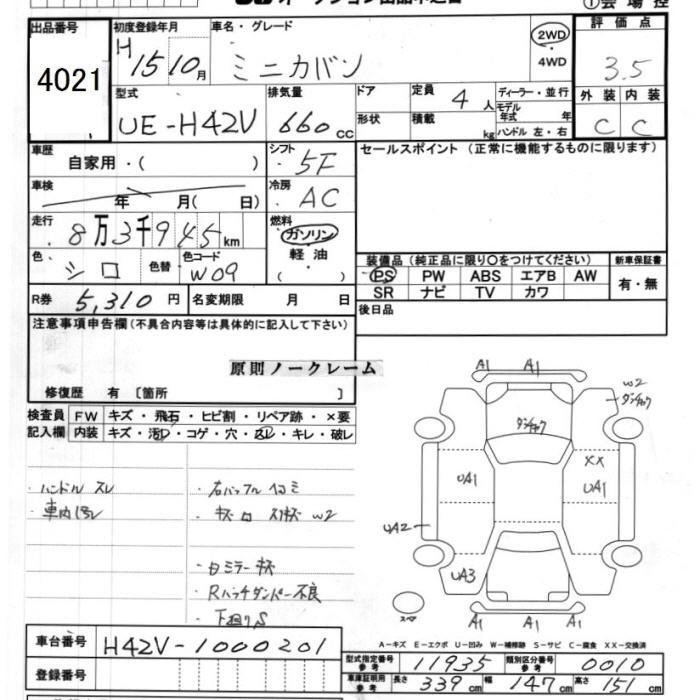 出品番号 初度登録年月 車名・グレード 2WD 評価点
4021 H 15 10月 ミニカバン 4WD 3.5
型式 排気量 ドア 定員 4人 ディーラー・並行 外装 内装
UE-H42V 660cc 形状 積載 kg モデル年式 年 C C
ハンドル 左・右
車歴 自家用・( ) シフト 5F セールスポイント (正常に機能するものに限ります)
車検 年 月( 日) 冷房 AC
走行 8万3千945km 燃料 ガソリン
色 シロ 色替 色コード W09 軽油 ( )
装備品 (純正品に限り○をつけてください) 新車保証書
PS PW ABS エアB AW 有・無
SR ナビ TV カワ
R券 5,310円 名変期限 月 日 後日品
注意事項申告欄(不具合内容等は具体的に記入して下さい)
原則ノークレーム
修復歴 有 〔箇所 〕
検査員 FW キズ・飛石・ヒビ割・リペア跡・×要
記入欄 内装 キズ・汚レ・コゲ・穴・凹レ・キレ・破レ
・ハンドル スレ
・車内汚レ
W2
・白ミラー キズ
・Rハッチダンパー不良
・下廻りS
A1 A1 W2
ダンチョウ
ダンチョウ
XX
UA1 UA1
UA2
UA3
スペア A1 A1 A1
A-キズ E-エクボ U-凹み W-補修跡 S-サビ C-腐食 XX-交換済
車台番号 H42V-1000201
型式指定番号 参考 11935 類別区分番号 参考 0010
登録番号 車庫証明用 参考 長さ 339cm 幅 147cm 高さ 151cm